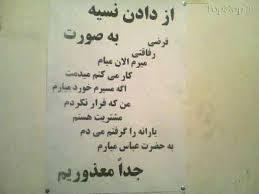 از دادن نسیه
به صورت
قرضی
رفاقتی
میرم الان میام
کار می کنم میدمت
اگه مسیرم خورد میارم
من که فرار نکردم
مشتریت هستم
یارانه را گرفتم می دم
به حضرت عباس میارم
جداً معذوریم